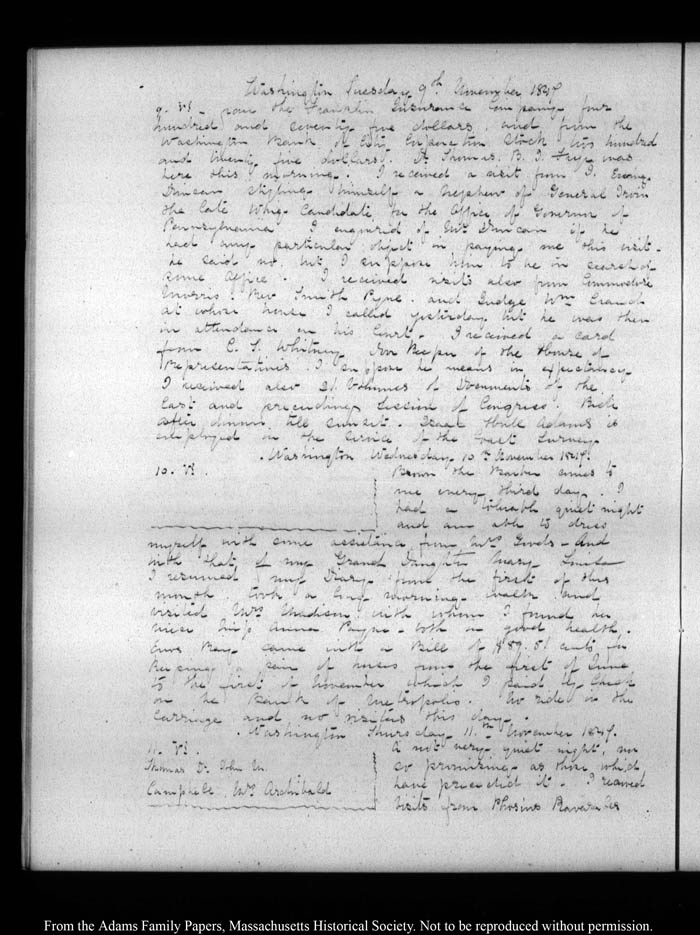 Washington Tuesday 9th November 1847
9. VI. from the Franklin Insurance Company four
hundred and seventy five dollars, and from the
Washington Bank of stock two hundred
and twenty five dollars. Dr. Thomas. B. J. Frye was
here this morning. I received a visit from J.
Duncan styling himself a Nephew of General Irvin
the late Whig Candidate for the Office of Governor of
Pennsylvania I enquired of Mr Duncan if he
had any particular object in paying me this visit.
he said no, but I suppose him to be in search of
some Office. I received visits also from Commodore
Morris. Rev. Smith Pyne. and Judge Wm Cranch
at whose house I called yesterday but he was then
in attendance on his Court. I received a card
from C. S. Whitney Door Keeper of the House of
Representatives I suppose he means in expectancy
I received also 21 Volumes of Documents of the
last and preceeding Session of Congress. Ride
after dinner till sunset. Isaac Hull Adams is
employed on the service of the Coast Survey
Washington Wednesday 10th November 1847.
10. VI. Brown the Barber comes to
me every third day. I
had a tolerable quiet night
and am able to dress
myself with some assistance from Mrs And
with that of my Grand Daughter Mary Louisa
I resumed my Diary from the first of this
month. took a long morning walk and
visited Mrs Madison, with whom I found her
niece Miss Anna Payne. both in good health.
came with a Bill of $89.51 cents for
keeping a pair of horses from the first of June
to the first of November which I paid by Check
on the Bank of Metropolis. No ride in the
Carriage and no visitors this day.
Washington Thursday 11th November 1847.
11. VI. A not very quiet night, nor
Thomas Dr. John M. so promising as those which
Campbell Mr Archibald have preceeded it. I received
visits from
From the Adams Family Papers, Massachusetts Historical Society. Not to be reproduced without permission.